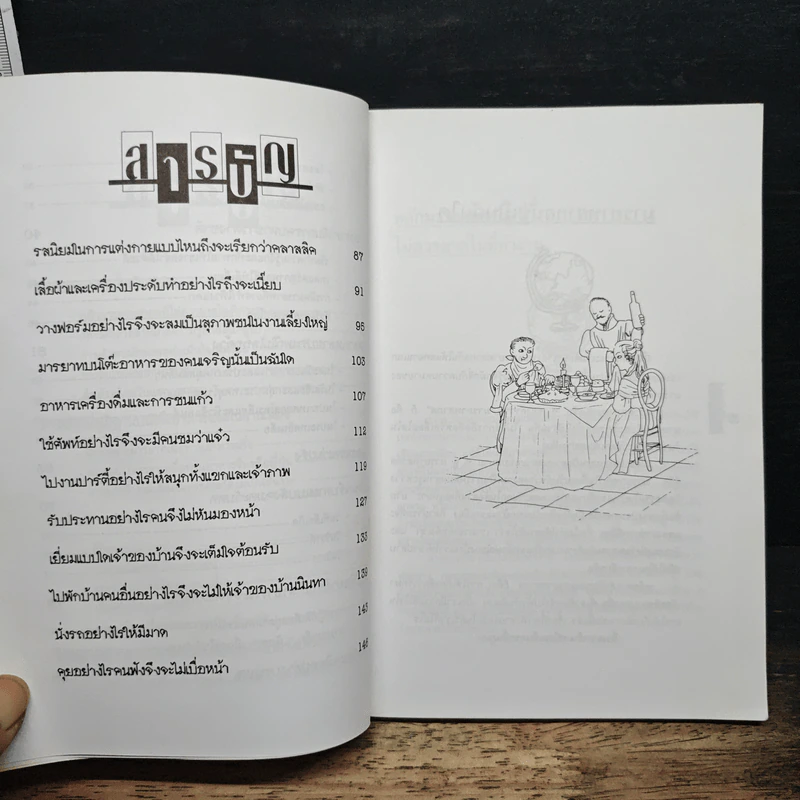 สารบัญ
รสนิยมในการแต่งกายแบบไหนถึงจะเรียกว่าคลาสสิค 87
เสื้อผ้าและเครื่องประดับทำอย่างไรถึงจะเนี้ยบ 91
วางฟอร์มอย่างไรจึงจะสมเป็นสุภาพชนในงานเลี้ยงใหญ่ 95
มารยาทบนโต๊ะอาหารของคนเจริญนั้นเป็นฉันใด 103
อาหารเครื่องดื่มและการชนแก้ว 107
ใช้ศัพท์อย่างไรจึงจะมีคนชมว่าแจ๋ว 112
ไปงานปาร์ตี้อย่างไรให้สนุกทั้งแขกและเจ้าภาพ 119
รับประทานอย่างไรคนจึงไม่หันมองหน้า 127
เยี่ยมแบบใดเจ้าของบ้านจึงจะเต็มใจต้อนรับ 133
ไปพักบ้านคนอื่นอย่างไรจึงจะไม่ให้เจ้าของบ้านนินทา 139
นั่งรถอย่างไรให้มีมาด 143
คุยอย่างไรคนฟังจึงจะไม่เบื่อหน้า 146